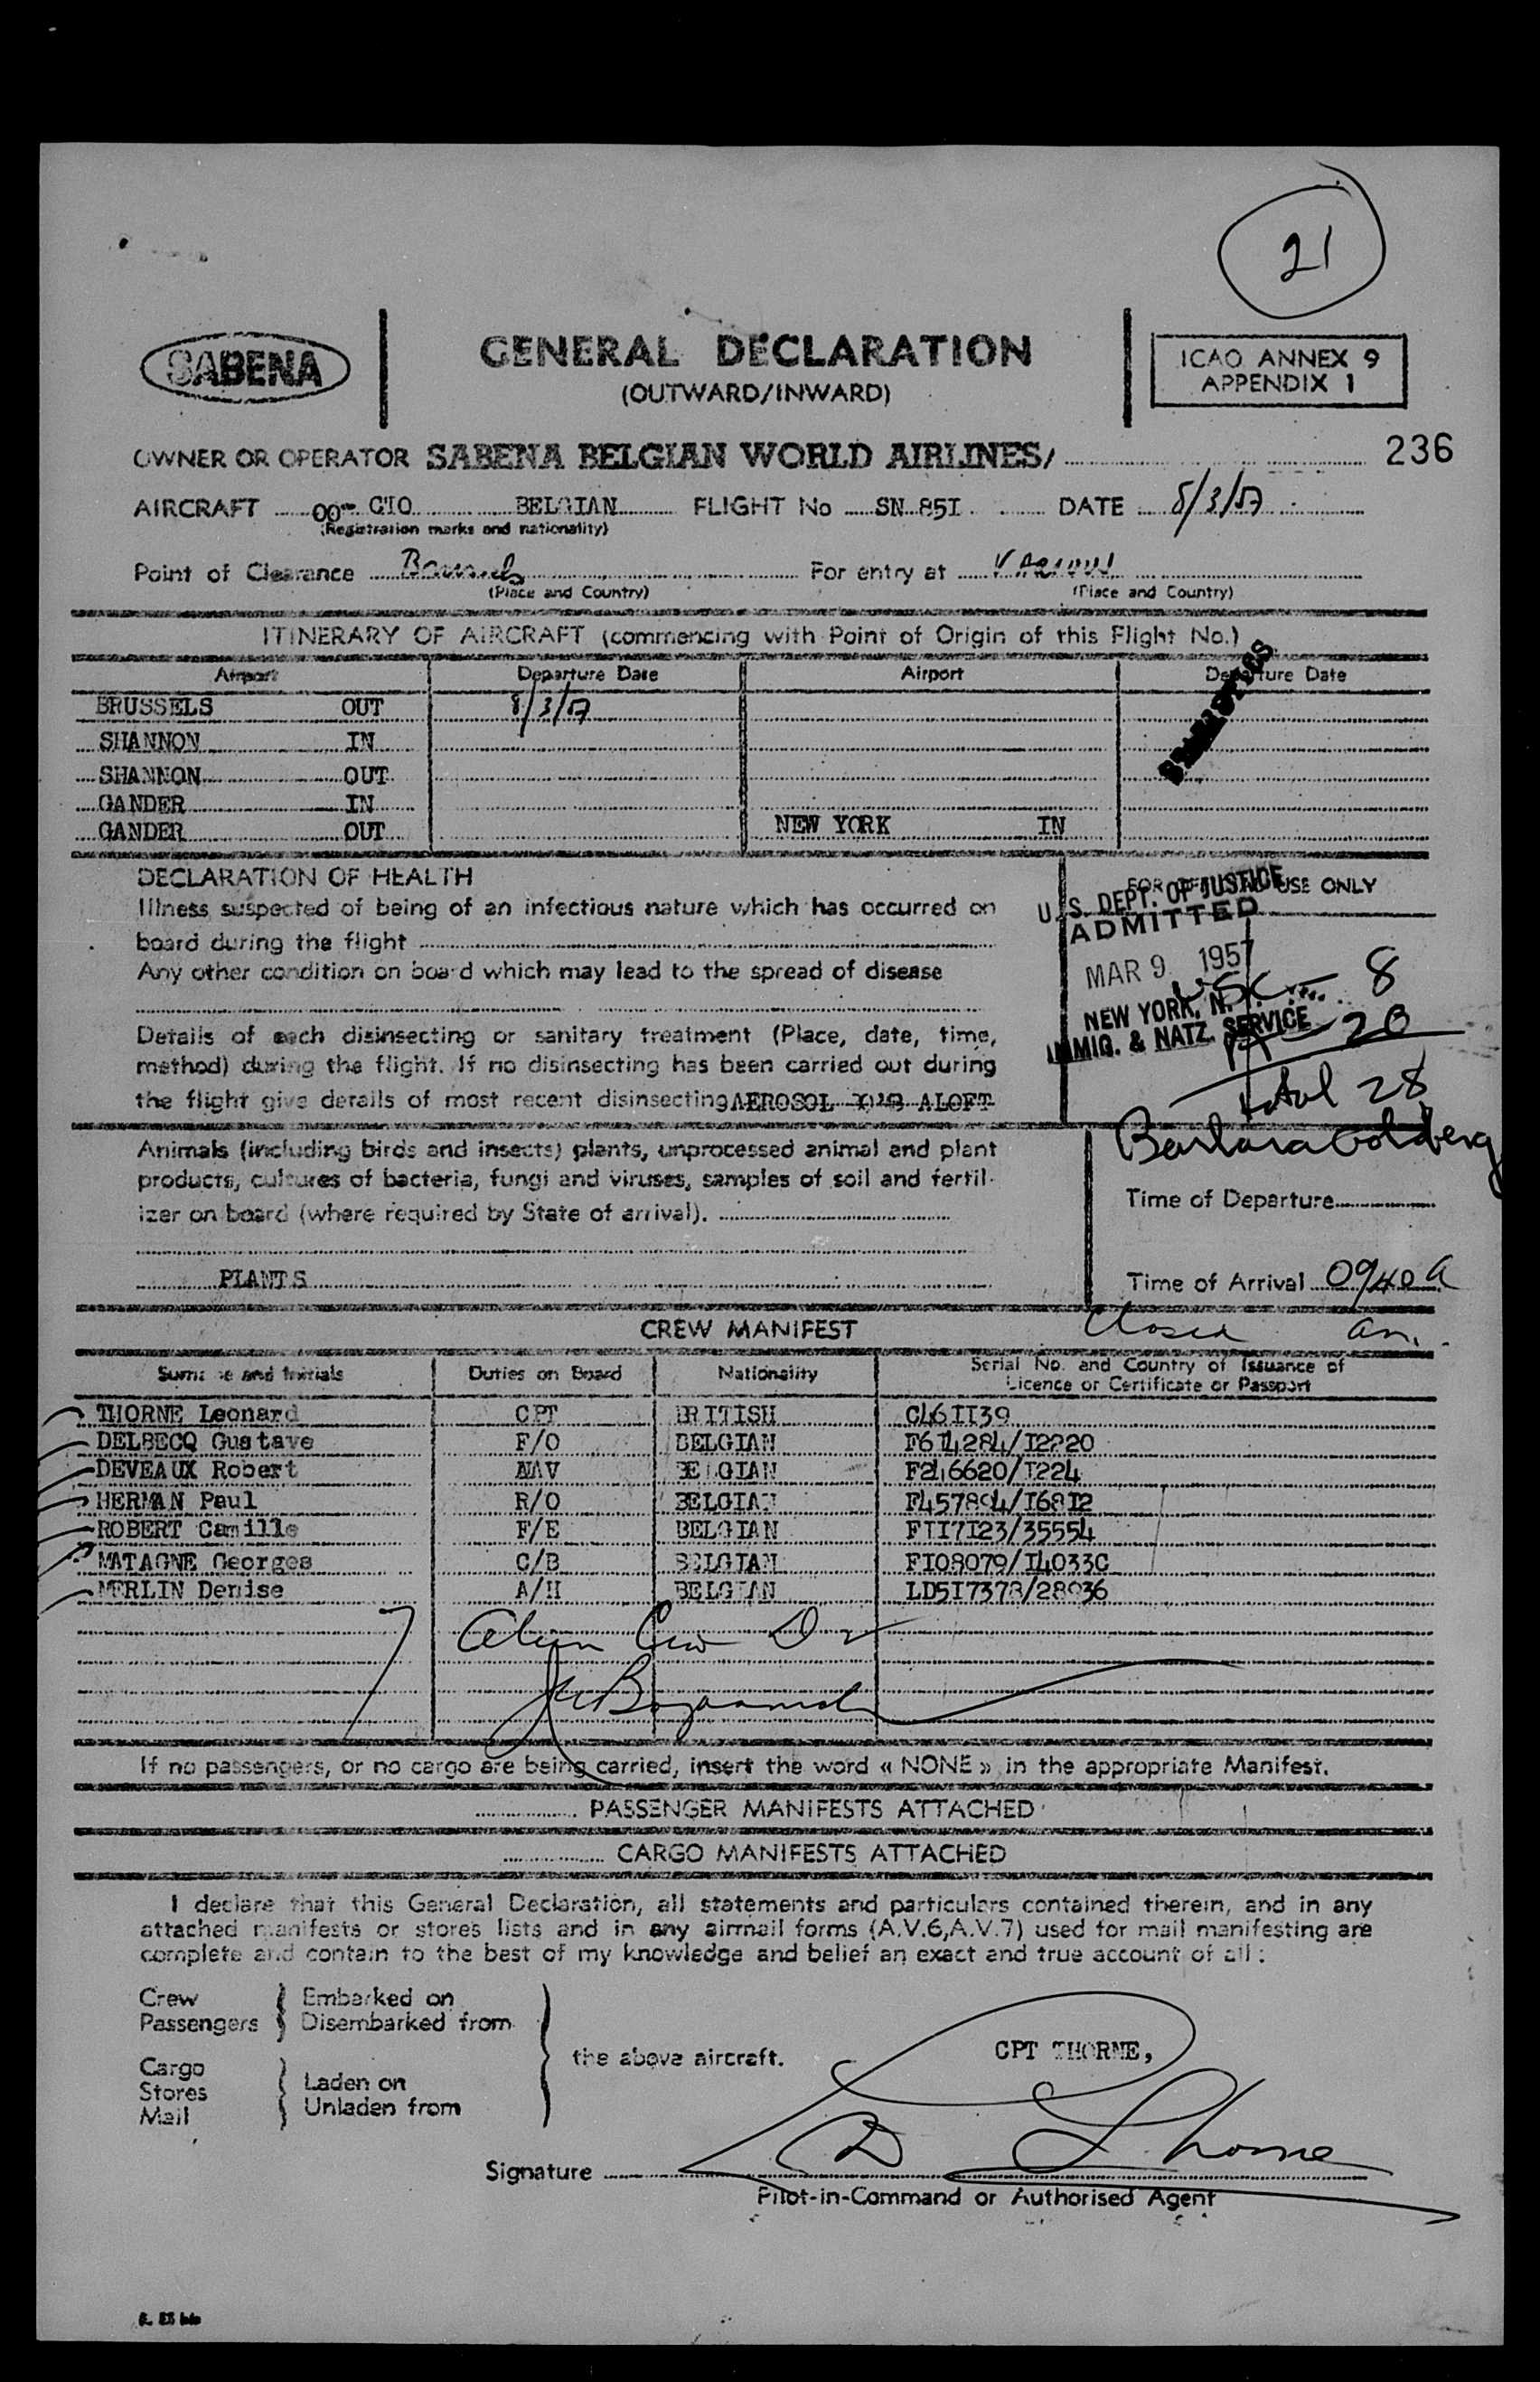 21
SABENA
GENERAL DECLARATION
(OUTWARD/INWARD)
ICAO ANNEX 9
APPENDIX 1
OWNER OR OPERATOR SABENA BELGIAN WORLD AIRLINES/
236
AIRCRAFT OO- CTO BELGIAN FLIGHT No SN 85I DATE 8/3/57
(Registration marks and nationality)
Point of Clearance Brussels For entry at
(Place and Country) (Place and Country)
ITINERARY OF AIRCRAFT (commencing with Point of Origin of this Flight No.)
Airport Departure Date Airport Departure Date
BRUSSELS OUT 8/3/57
SHANNON IN
SHANNON OUT
GANDER IN
GANDER OUT NEW YORK IN
DECLARATION OF HEALTH
Illness suspected of being of an infectious nature which has occurred on
board during the flight
Any other condition on board which may lead to the spread of disease
Details of each disinsecting or sanitary treatment (Place, date, time,
method) during the flight. If no disinsecting has been carried out during
the flight give details of most recent disinsecting AEROSOL ALOFT
FOR USE ONLY
U.S. DEPT. OF JUSTICE
ADMITTED
MAR 9 1957
NEW YORK, N.
IMMIG. & NATZ. SERVICE
USC 8
A 20
Total 28
Barbara Goldberg
Animals (including birds and insects) plants, unprocessed animal and plant
products, cultures of bacteria, fungi and viruses, samples of soil and fertil-
izer on board (where required by State of arrival).
PLANTS
Time of Departure
Time of Arrival 0940 a
Closed am.
CREW MANIFEST
Surname and Initials Duties on Board Nationality Serial No. and Country of Issuance of
Licence or Certificate or Passport
THORNE Leonard CPT BRITISH C46II39
DELBECQ Gustave F/O BELGIAN F614284/I2220
DEVEAUX Robert NAV BELGIAN F246620/I224
HERMAN Paul R/O BELGIAN F457894/I68I2
ROBERT Camille F/E BELGIAN FII7I23/35554
MATAGNE Georges C/B BELGIAN FI08079/I4033C
MERLIN Denise A/H BELGIAN LD5I7378/28936
7 Alien Crew
If no passengers, or no cargo are being carried, insert the word « NONE » in the appropriate Manifest.
PASSENGER MANIFESTS ATTACHED
CARGO MANIFESTS ATTACHED
I declare that this General Declaration, all statements and particulars contained therein, and in any
attached manifests or stores lists and in any airmail forms (A.V.6,A.V.7) used for mail manifesting are
complete and contain to the best of my knowledge and belief an exact and true account of all :
Crew Embarked on
Passengers Disembarked from
the above aircraft.
Cargo
Stores Laden on
Mail Unladen from
CPT THORNE,
Signature L Thorne
Pilot-in-Command or Authorised Agent